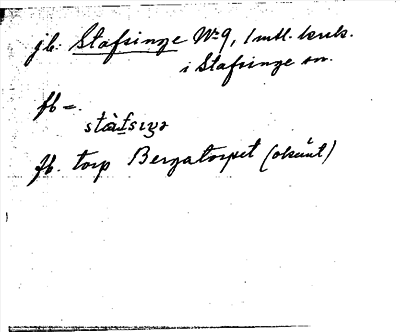 jb: Stafsinge No 9, 1 mtl. krsk.
i Stafsinge sn.
fb =.
stàfsıŋə
fb. torp Bergatorpet (okänt)